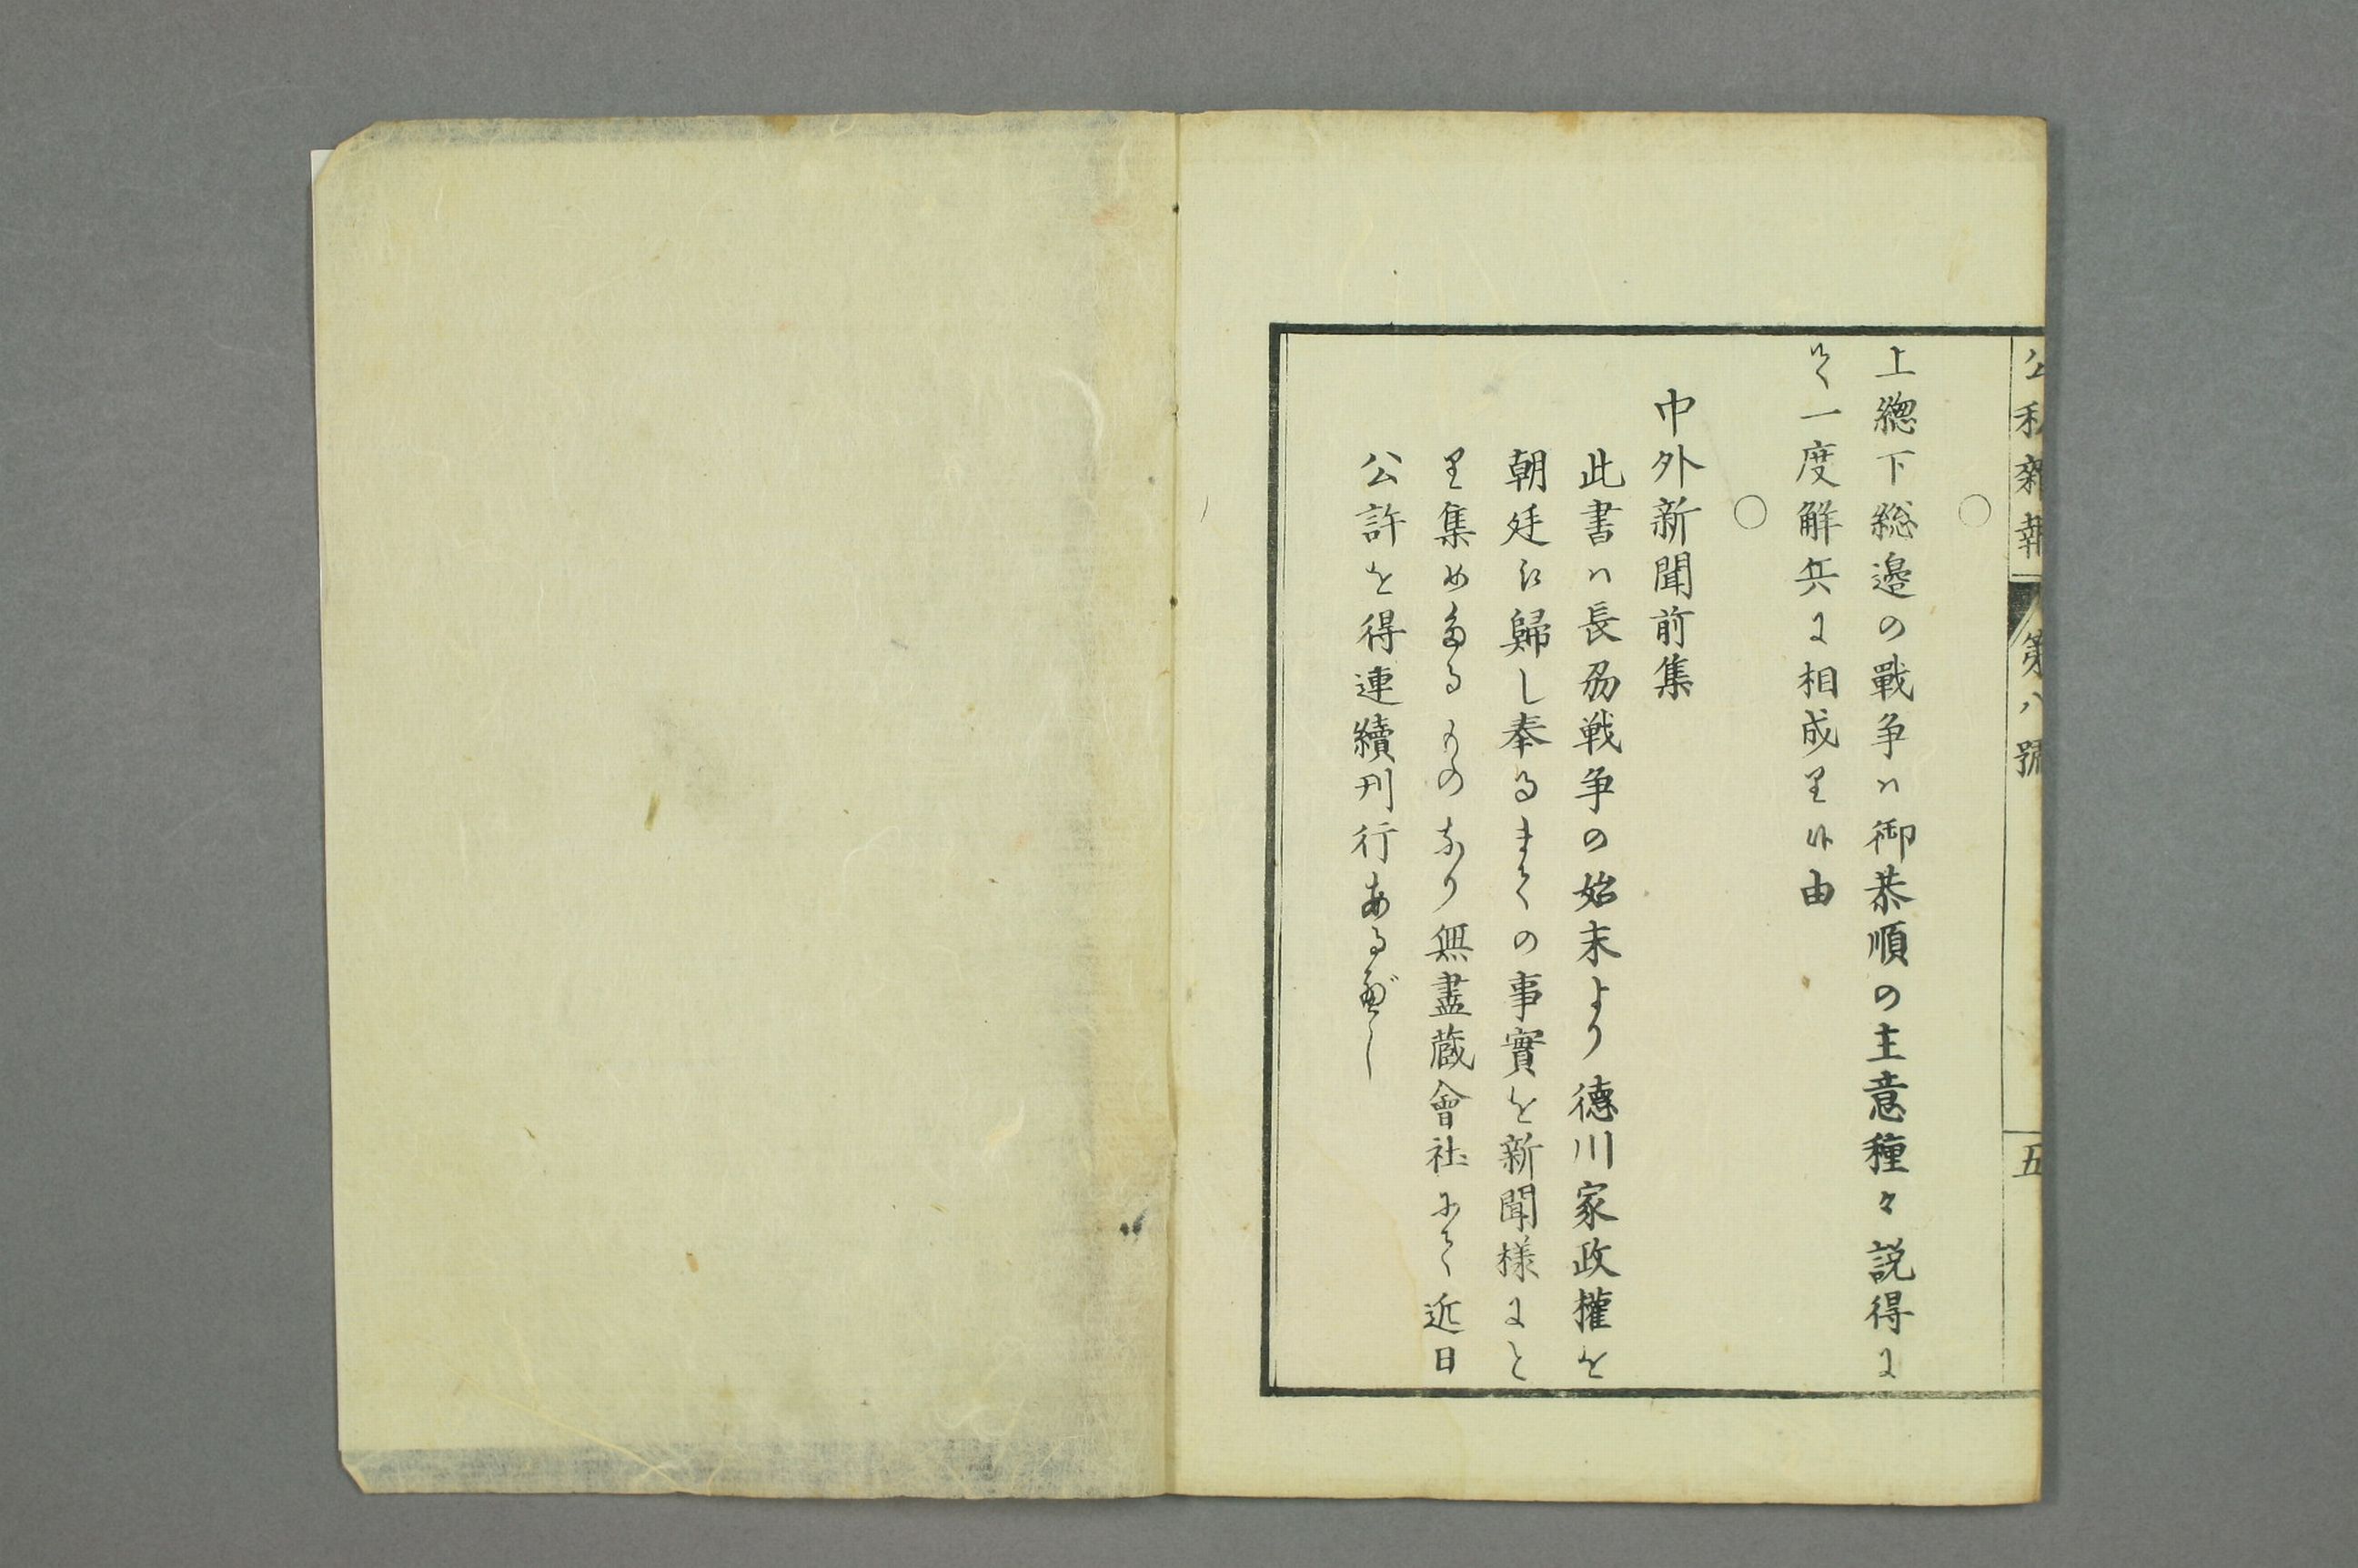 公私雑報
第八號
五
○
上總下総邉の戰争ハ御恭順の主意種々説得に
て一度解兵に相成り候由
○
中外新聞前集
此書ハ長刕戦争の始末より德川家政權を
朝廷に歸し奉るまての事實を新聞様にと
り集めたるものなり無盡蔵會社にて近日
公許を得連續刋行あるべし